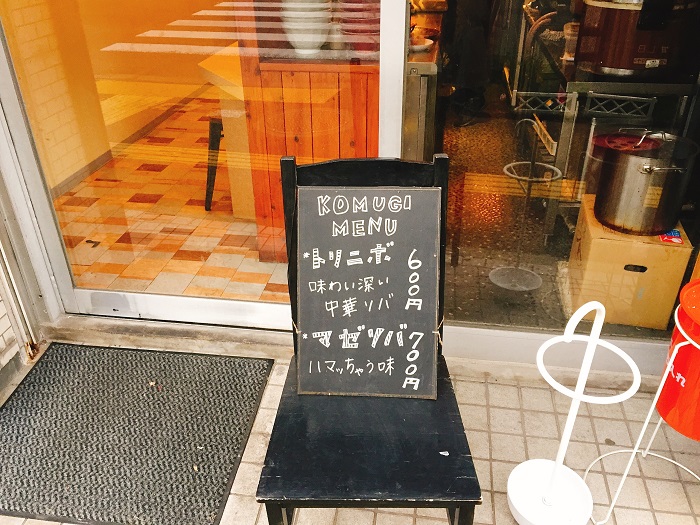 KOMUGI
MENU
*トリニボ 600円
味わい深い
中華ソバ
*マゼソバ 700円
ハマッちゃう味
入れ